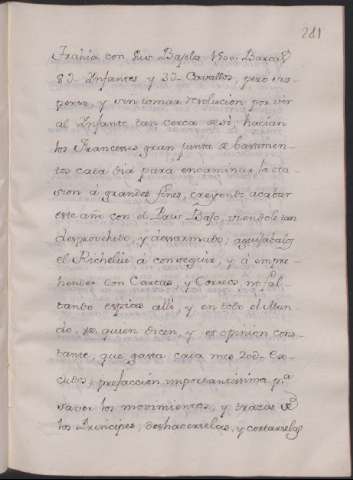 281
Francia con Luis Basola 1500. Barcas
8U Infantes, y 3U Cavallos, pero sus
penso, y sin tomar resolucion por ver
al Infante tan cerca de si; hacian
los Franceses gran junta de bastimen
tos cada dia para encaminar la oca
sion a grandes fines, creyendo acabar
este año con el Pais Bajo, viendole tan
desproveido, y desarmado; aguijabalos
el Richelieu à conseguir, y à empre
hender con Cartas, y Correos, no fal
tando espias alli, y en todo el Mun
do, de quien dicen, y es opinion cons
tante, que gasta cada mes 200U Es
cudos; prefaccion importantissima pa
saver los movimientos, y trazas de
los Principes, deshacerselas, y cortarselas